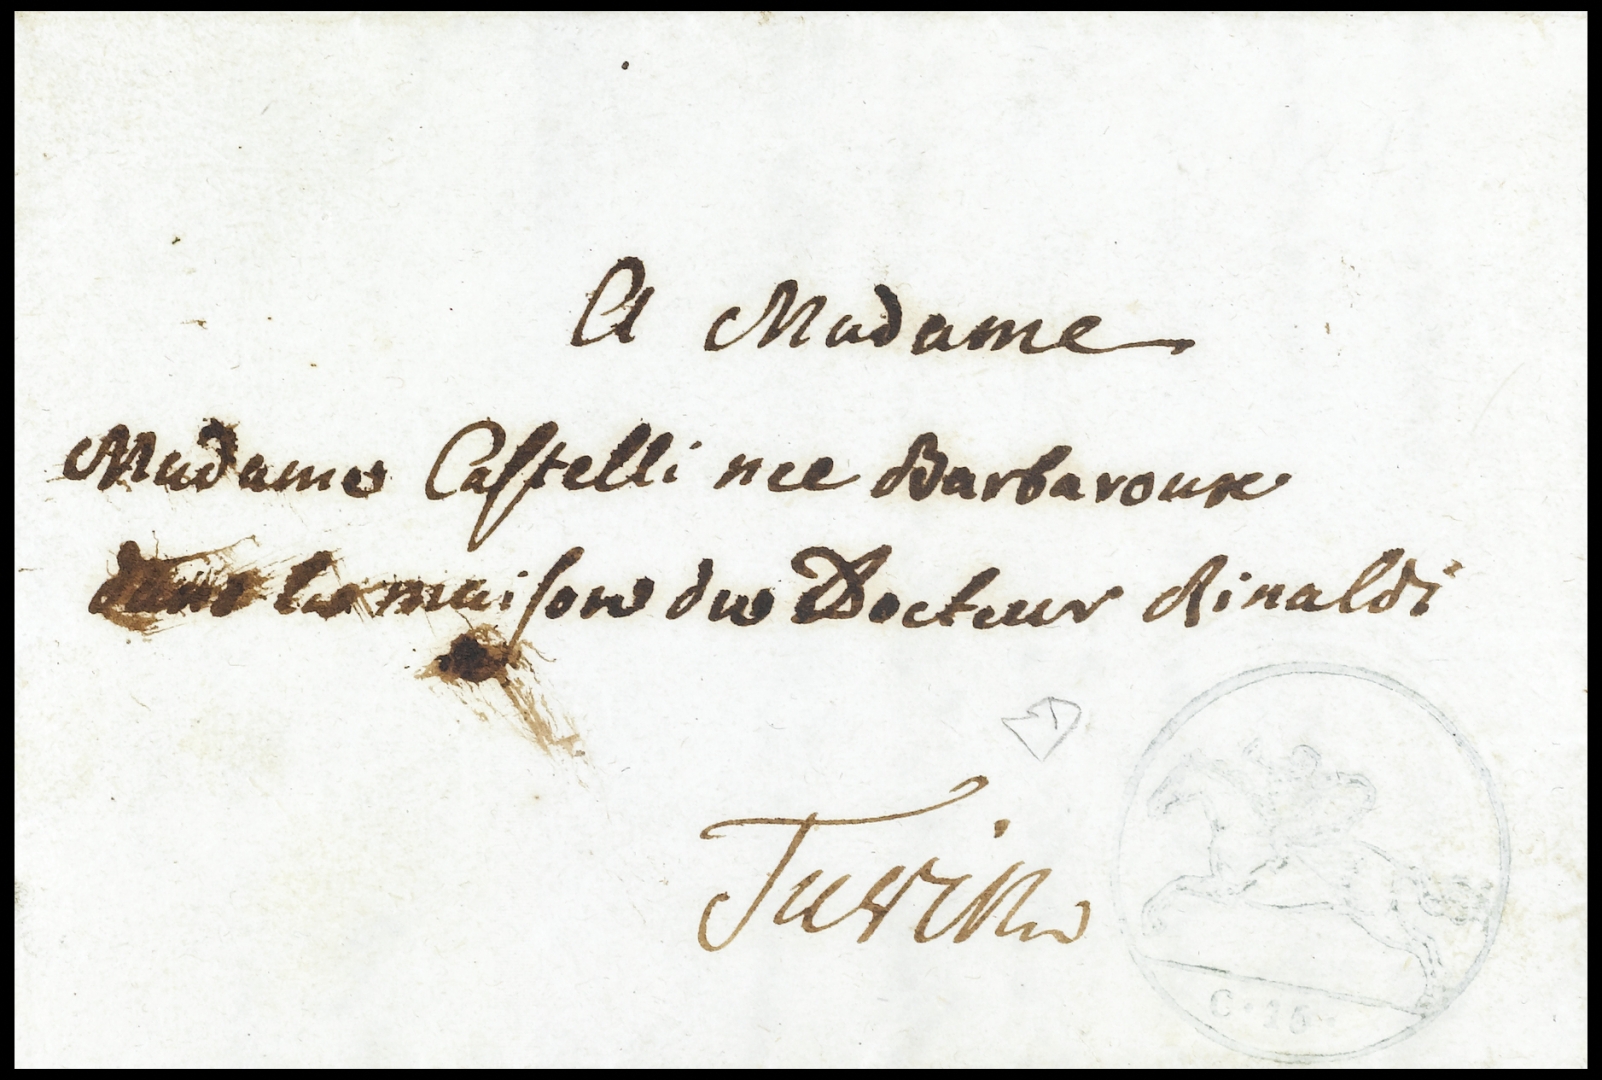 A Madame
Madame Castelli nee Barbaroux
dans la maison du Docteur Rinaldi
Turin
C. 15